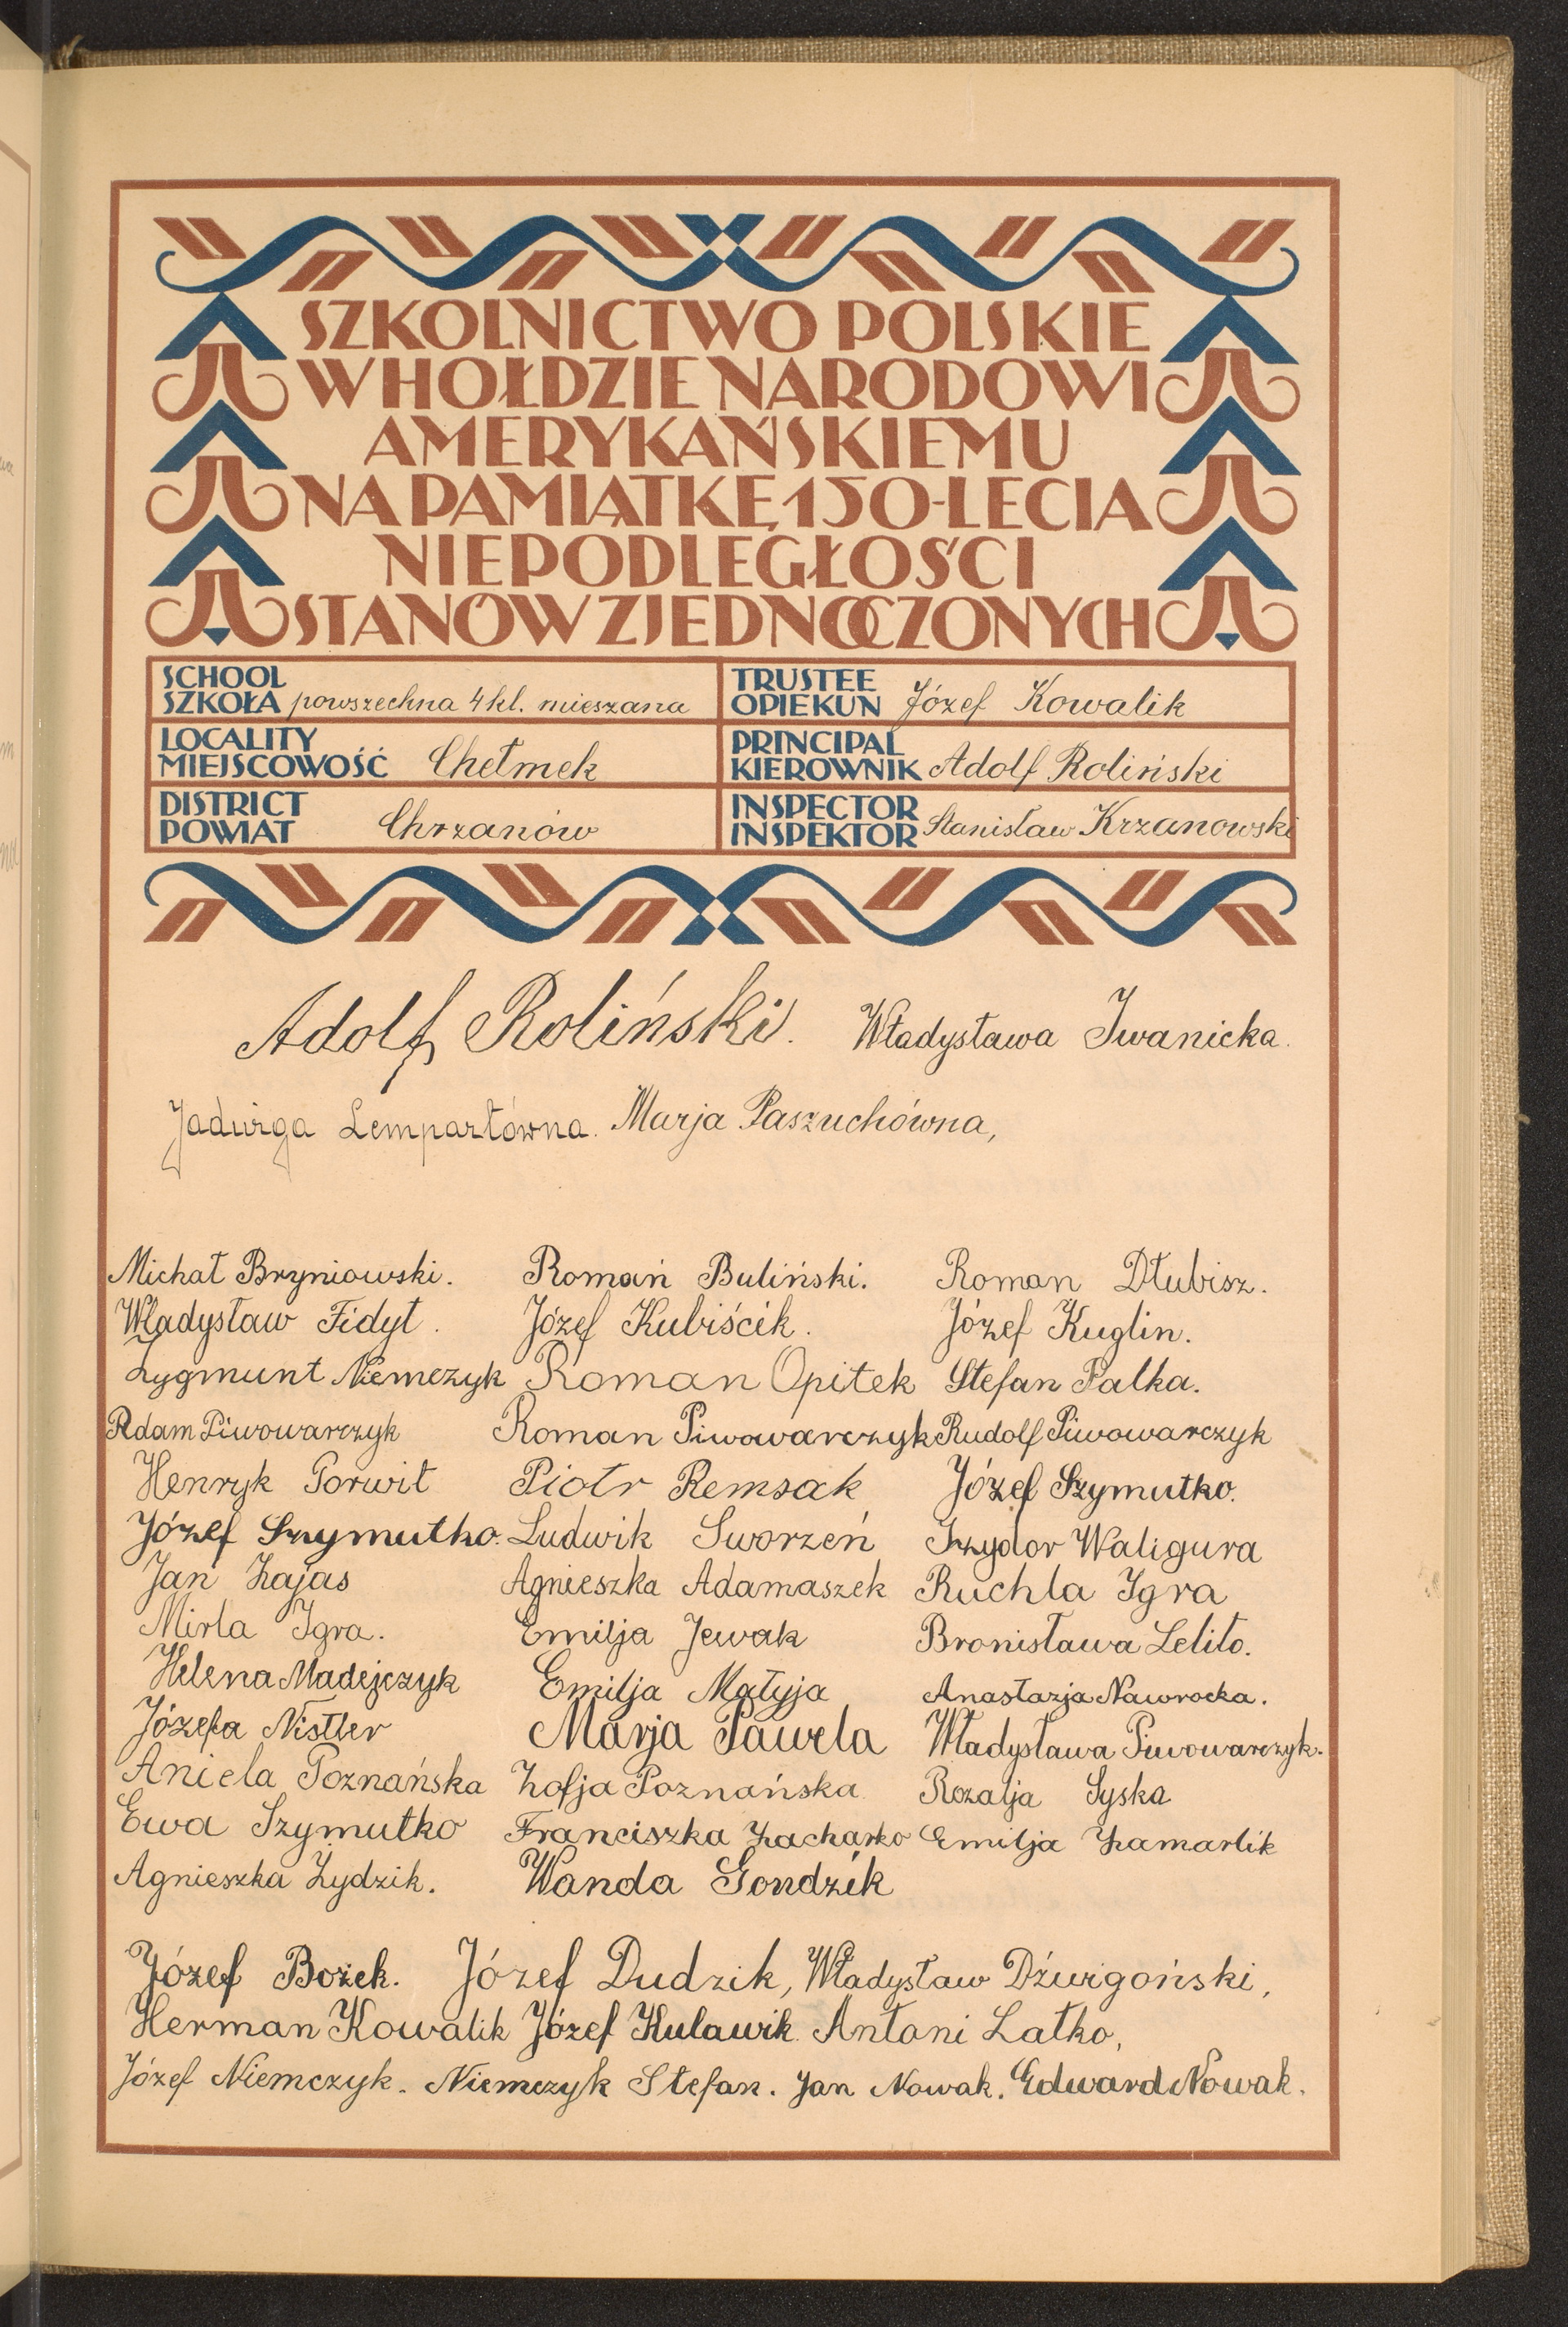 SZKOLNICTWO POLSKIE
W HOŁDZIE NARODOWI
AMERYKAŃSKIEMU
NA PAMIĄTKĘ 150-LECIA
NIEPODLEGŁOŚCI
STANÓW ZJEDNOCZONYCH
SCHOOL
SZKOŁA powszechna 4 kl. mieszana
TRUSTEE
OPIEKUN Józef Kowalik
LOCALITY
MIEJSCOWOŚĆ Chełmek
PRINCIPAL
KIEROWNIK Adolf Roliński
DISTRICT
POWIAT Chrzanów
INSPECTOR
INSPEKTOR Stanisław Krzanowski
Adolf Roliński. Władysława Iwanicka.
Jadwiga Lempartówna. Marja Paszuchówna,
Michał Bryniowski. Romań Buliński. Roman Dłubisz.
Władysław Fidyt. Józef Kubiścik. Józef Kuglin.
Zygmunt Niemczyk Roman Opitek Stefan Palka.
Adam Piwowarczyk Roman Piwowarczyk Rudolf Piwowarczyk
Henryk Porwit Piotr Remsak Józef Szymutko.
Józef Szymutko. Ludwik Sworzeń Izydor Waligura
Jan Zajas Agnieszka Adamaszek Ruchla Igra
Mirla Igra. Emilja Jewak Bronisława Lelito.
Helena Madejczyk Emilja Małyja Anastazja Nawrocka.
Józefa Nistler Marja Pawela Władysława Piwowarczyk.
Aniela Poznańska Zofja Poznańska Rozalja Syska
Ewa Szymutko Franciszka Zacharko Emilja Zamarlik
Agnieszka Żydzik. Wanda Gondzik
Józef Bożek. Józef Dudzik, Władysław Dźwigoński,
Herman Kowalik Józef Kulawik. Antoni Latko,
Józef Niemczyk. Niemczyk Stefan. Jan Nowak. Edward Nowak.